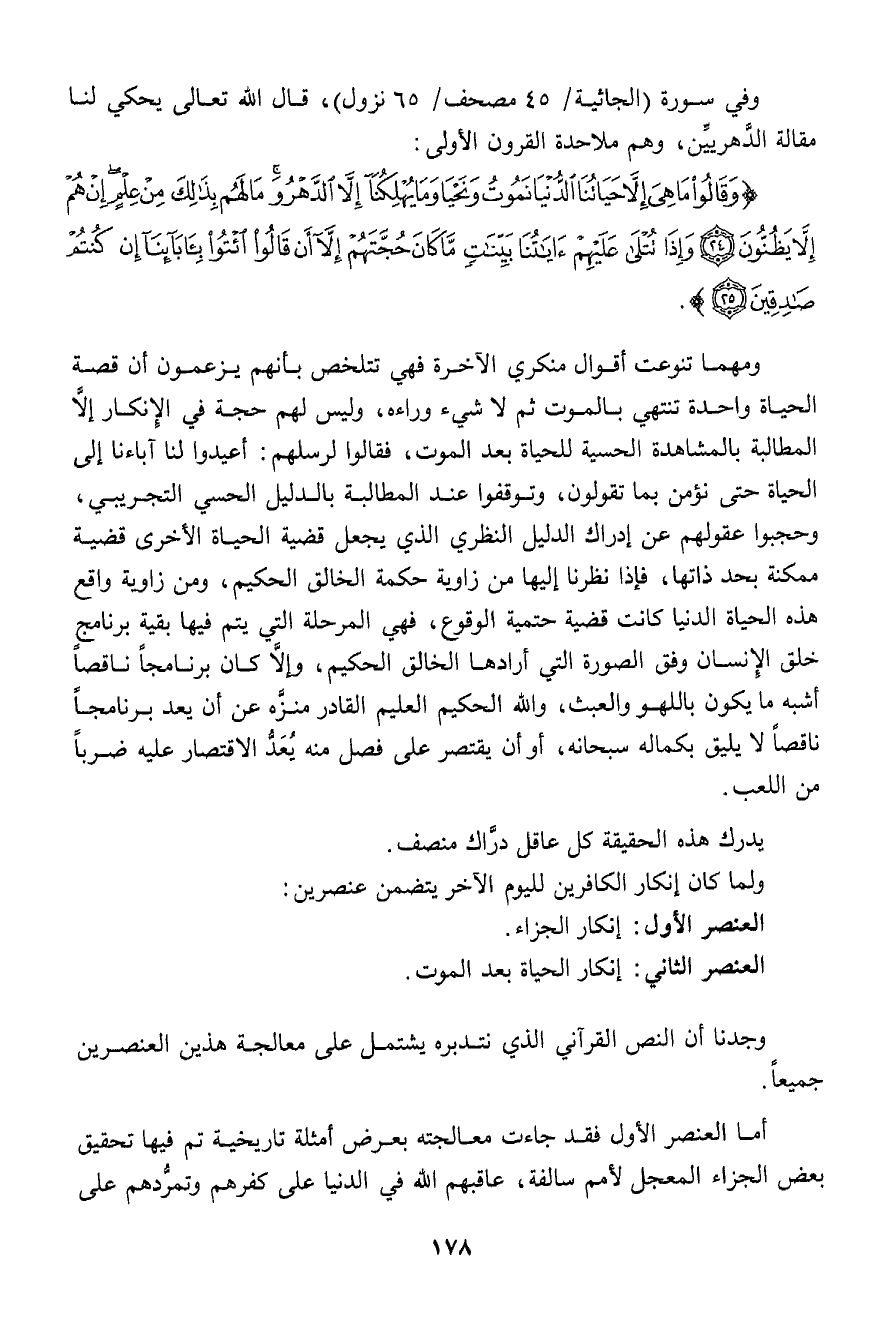 وفي سورة (الجاثية/ ٤٥ مصحف/ ٦٥ نزول)، قال الله تعالى يحكي لنا
مقالة الدَّهريِّين، وهم ملاحدة القرون الأولى:
﴿وَقَالُوا۟ مَا هِىَ إِلَّا حَيَاتُنَا ٱلدُّنْيَا نَمُوتُ وَنَحْيَا وَمَا يُهْلِكُنَآ إِلَّا ٱلدَّهْرُ ۚ وَمَا لَهُم بِذَٰلِكَ مِنْ عِلْمٍ ۖ إِنْ هُمْ
إِلَّا يَظُنُّونَ ٢٤ وَإِذَا تُتْلَىٰ عَلَيْهِمْ ءَايَٰتُنَا بَيِّنَٰتٍ مَّا كَانَ حُجَّتَهُمْ إِلَّآ أَن قَالُوا۟ ٱئْتُوا۟ بِـَٔابَآئِنَآ إِن كُنتُمْ
صَٰدِقِينَ ٢٥﴾.
ومهما تنوعت أقوال منكري الآخرة فهي تتلخص بأنهم يزعمون أن قصة
الحياة واحدة تنتهي بالموت ثم لا شيء وراءه، وليس لهم حجة في الإنكار إلَّا
المطالبة بالمشاهدة الحسية للحياة بعد الموت، فقالوا لرسلهم: أعيدوا لنا آباءنا إلى
الحياة حتى نؤمن بما تقولون، وتوقفوا عند المطالبة بالدليل الحسي التجريبي،
وحجبوا عقولهم عن إدراك الدليل النظري الذي يجعل قضية الحياة الأخرى قضية
ممكنة بحد ذاتها، فإذا نظرنا إليها من زاوية حكمة الخالق الحكيم، ومن زاوية واقع
هذه الحياة الدنيا كانت قضية حتمية الوقوع، فهي المرحلة التي يتم فيها بقية برنامج
خلق الإنسان وفق الصورة التي أرادها الخالق الحكيم، وإلَّا كان برنامجاً ناقصاً
أشبه ما يكون باللهو والعبث، والله الحكيم العليم القادر منزَّه عن أن يعد برنامجاً
ناقصاً لا يليق بكماله سبحانه، أو أن يقتصر على فصل منه يُعَدُّ الاقتصار عليه ضرباً
من اللعب.
يدرك هذه الحقيقة كل عاقل درَّاك منصف.
ولما كان إنكار الكافرين لليوم الآخر يتضمن عنصرين:
العنصر الأول: إنكار الجزاء.
العنصر الثاني: إنكار الحياة بعد الموت.
وجدنا أن النص القرآني الذي نتدبره يشتمل على معالجة هذين العنصرين
جميعاً.
أما العنصر الأول فقد جاءت معالجته بعرض أمثلة تاريخية تم فيها تحقيق
بعض الجزاء المعجل لأمم سالفة، عاقبهم الله في الدنيا على كفرهم وتمرُّدهم على
١٧٨